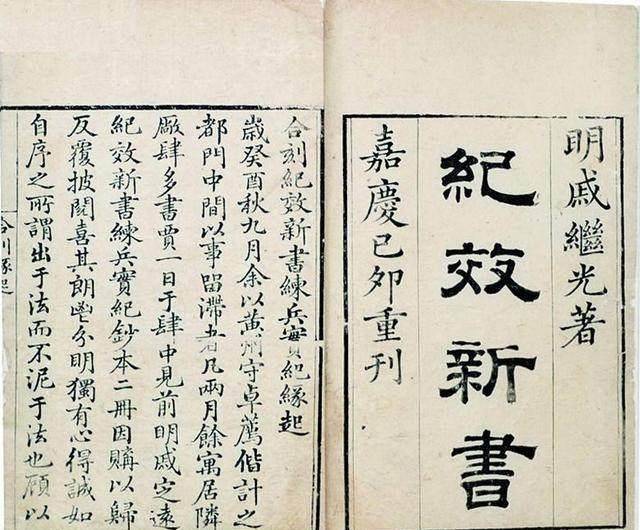 明戚繼光著
紀效新書
嘉慶己卯重刊
合刻紀效新書練兵實紀緣起
歲癸酉秋九月余以黃州守卓薦偕計之
都門中間以事留滯者凡兩月餘寓居隣
厰肆多書賈一日于肆中見前明戚定遠
紀效新書練兵實紀鈔本二冊因購以歸
反覆披閱喜其朗鬯分明獨有心得誠如
自序之所謂出于法而不泥于法也顧以
合刻緣起